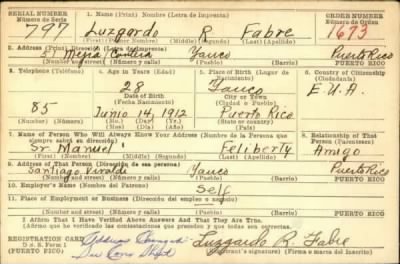 SERIAL NUMBER 1. Name (Print) Nombre (Letra de Imprenta) ORDER NUMBER
Número de Serie Número de Orden
797 Luzgardo R. Fabre 1673
(First) (Primer Nombre) (Middle) (Segundo) (Last) (Apellido)
2. Address (Print) Dirección (Letra de imprenta)
51 Mejia Yauco Puerto Rico
(Number and street) (Número y calle) (Town) (Ciudad o Pueblo) PUERTO RICO
3. Telephone (Teléfono) 4. Age in Years (Edad) 5. Place of Birth (Lugar de Nacimiento) 6. Country of Citizenship (Ciudadanía)
28 Yauco E.U.A.
Date of Birth City or Town
(Fecha Nacimiento) (Ciudad o Pueblo)
85 Junio 14, 1912 Puerto Rico
(Mo.) (Day) (Yr.) (State or country)
(Mes) (Día) (Año) (Estado o país)
7. Name of Person Who Will Always Know Your Address (Nombre de la Persona que siempre sabrá su dirección) 8. Relationship of That Person (Parentesco)
Sr. Manuel Feliberty Amigo
(First) (Primer Nombre) (Middle) (Segundo) (Last) (Apellido)
9. Address of That Person (Dirección de esa persona)
Santiago Vivaldi Yauco Puerto Rico
(Number and street) (Número y calle) (Town) (Ciudad o pueblo) PUERTO RICO
10. Employer's Name (Nombre del Patrono)
Self
11. Place of Employment or Business (Dirección del empleo o negocio)
(Number and street) (Número y calle) (Town) (Ciudad o pueblo) PUERTO RICO
I Affirm That I Have Verified Above Answers and That They are True.
(Afirmo que he verificado las contestaciones que preceden y que son ciertas.)
REGISTRATION CARD Address Changed Luzgardo R. Fabre
D. S. S. Form 1 See Cons Sheet (Registrant's signature) (Firma o marca del Inscrito)